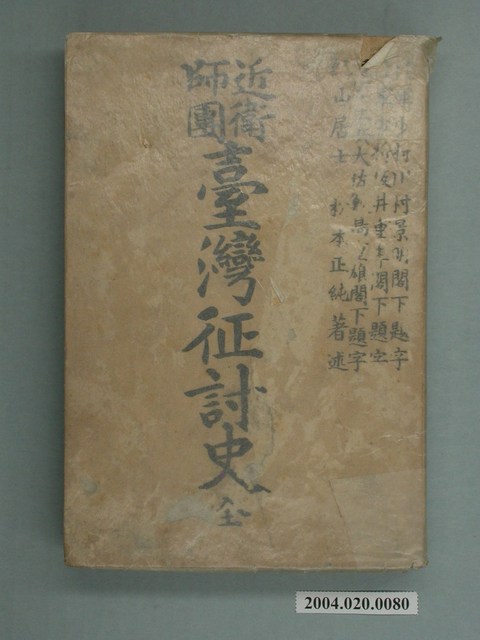 村景明閣下題字
井重季閣下題字
大佐閣下題字
山居士 杉本正純著述
近衛
師團
臺灣征討史
全
2004.020.0080